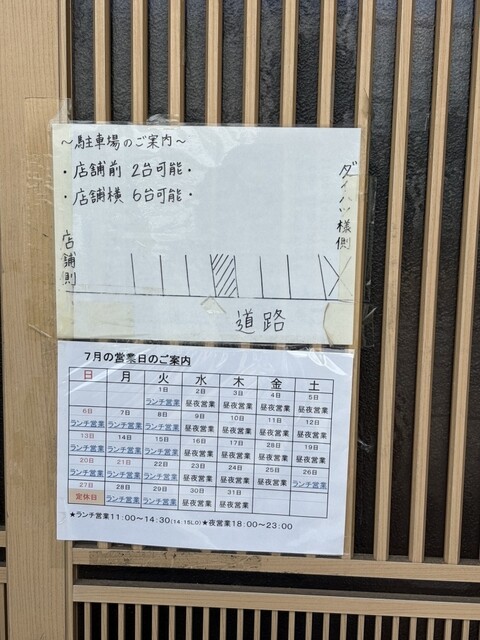 ~駐車場のご案内~
・店舗前 2台可能・
・店舗横 6台可能・
ダイハツ様側
店舗側
道路
7月の営業日のご案内
日 月 火 水 木 金 土
1日 2日 3日 4日 5日
ランチ営業 昼夜営業 昼夜営業 昼夜営業 昼夜営業
6日 7日 8日 9日 10日 11日 12日
ランチ営業 ランチ営業 ランチ営業 昼夜営業 昼夜営業 昼夜営業 昼夜営業
13日 14日 15日 16日 17日 18日 19日
ランチ営業 ランチ営業 ランチ営業 昼夜営業 昼夜営業 昼夜営業 昼夜営業
20日 21日 22日 23日 24日 25日 26日
ランチ営業 ランチ営業 ランチ営業 昼夜営業 昼夜営業 昼夜営業 ランチ営業
27日 28日 29日 30日 31日
定休日 ランチ営業 ランチ営業 昼夜営業 昼夜営業
★ランチ営業11:00~14:30(14:15LO)★夜営業18:00~23:00